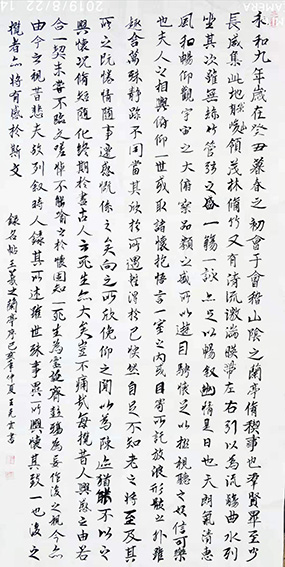 永和九年歲在癸丑暮春之初會于會稽山陰之蘭亭脩稧事也羣賢畢至少
長咸集此地峻領茂林脩竹又有清流激湍暎帶左右引以為流觴曲水列
坐其次雖無絲竹管弦之盛一觴一詠亦足以暢敘幽情是日也天朗氣清惠
風和暢仰觀宇宙之大俯察品類之盛所以遊目騁懷足以極視聽之娛信可樂
也夫人之相與俯仰一世或取諸懷抱悟言一室之內或因寄所託放浪形骸之外雖
趣舍萬殊靜躁不同當其欣於所遇暫得於己快然自足不知老之將至及其
所之既惓情隨事遷感慨係之矣向之所欣俛仰之間以為陳迹猶不能不以之
興懷況脩短隨化終期於盡古人云死生亦大矣豈不痛哉每攬昔人興感之由若
合一契未嘗不臨文嗟悼不能喻之於懷固知一死生為虛誕齊彭殤為妄作後之視今亦
由今之視昔悲夫故列敘時人錄其所述雖世殊事異所以興懷其致一也後之
攬者亦將有感於斯文
錄名帖王羲之蘭亭序己亥年仲夏王書
2019/8/22 14
AMERA